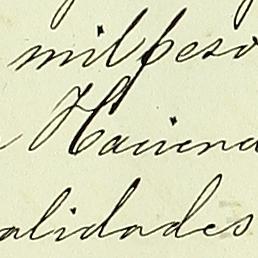 mil peso
Hacien
alidades